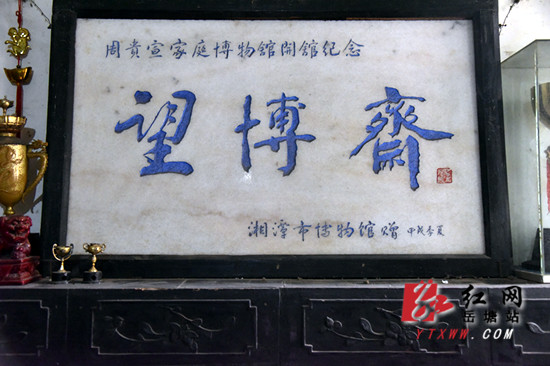 周貴宣家庭博物館開館纪念
望博齋
湘潭市博物館赠 甲戌季夏
红网
岳塘站
YTXWW.COM